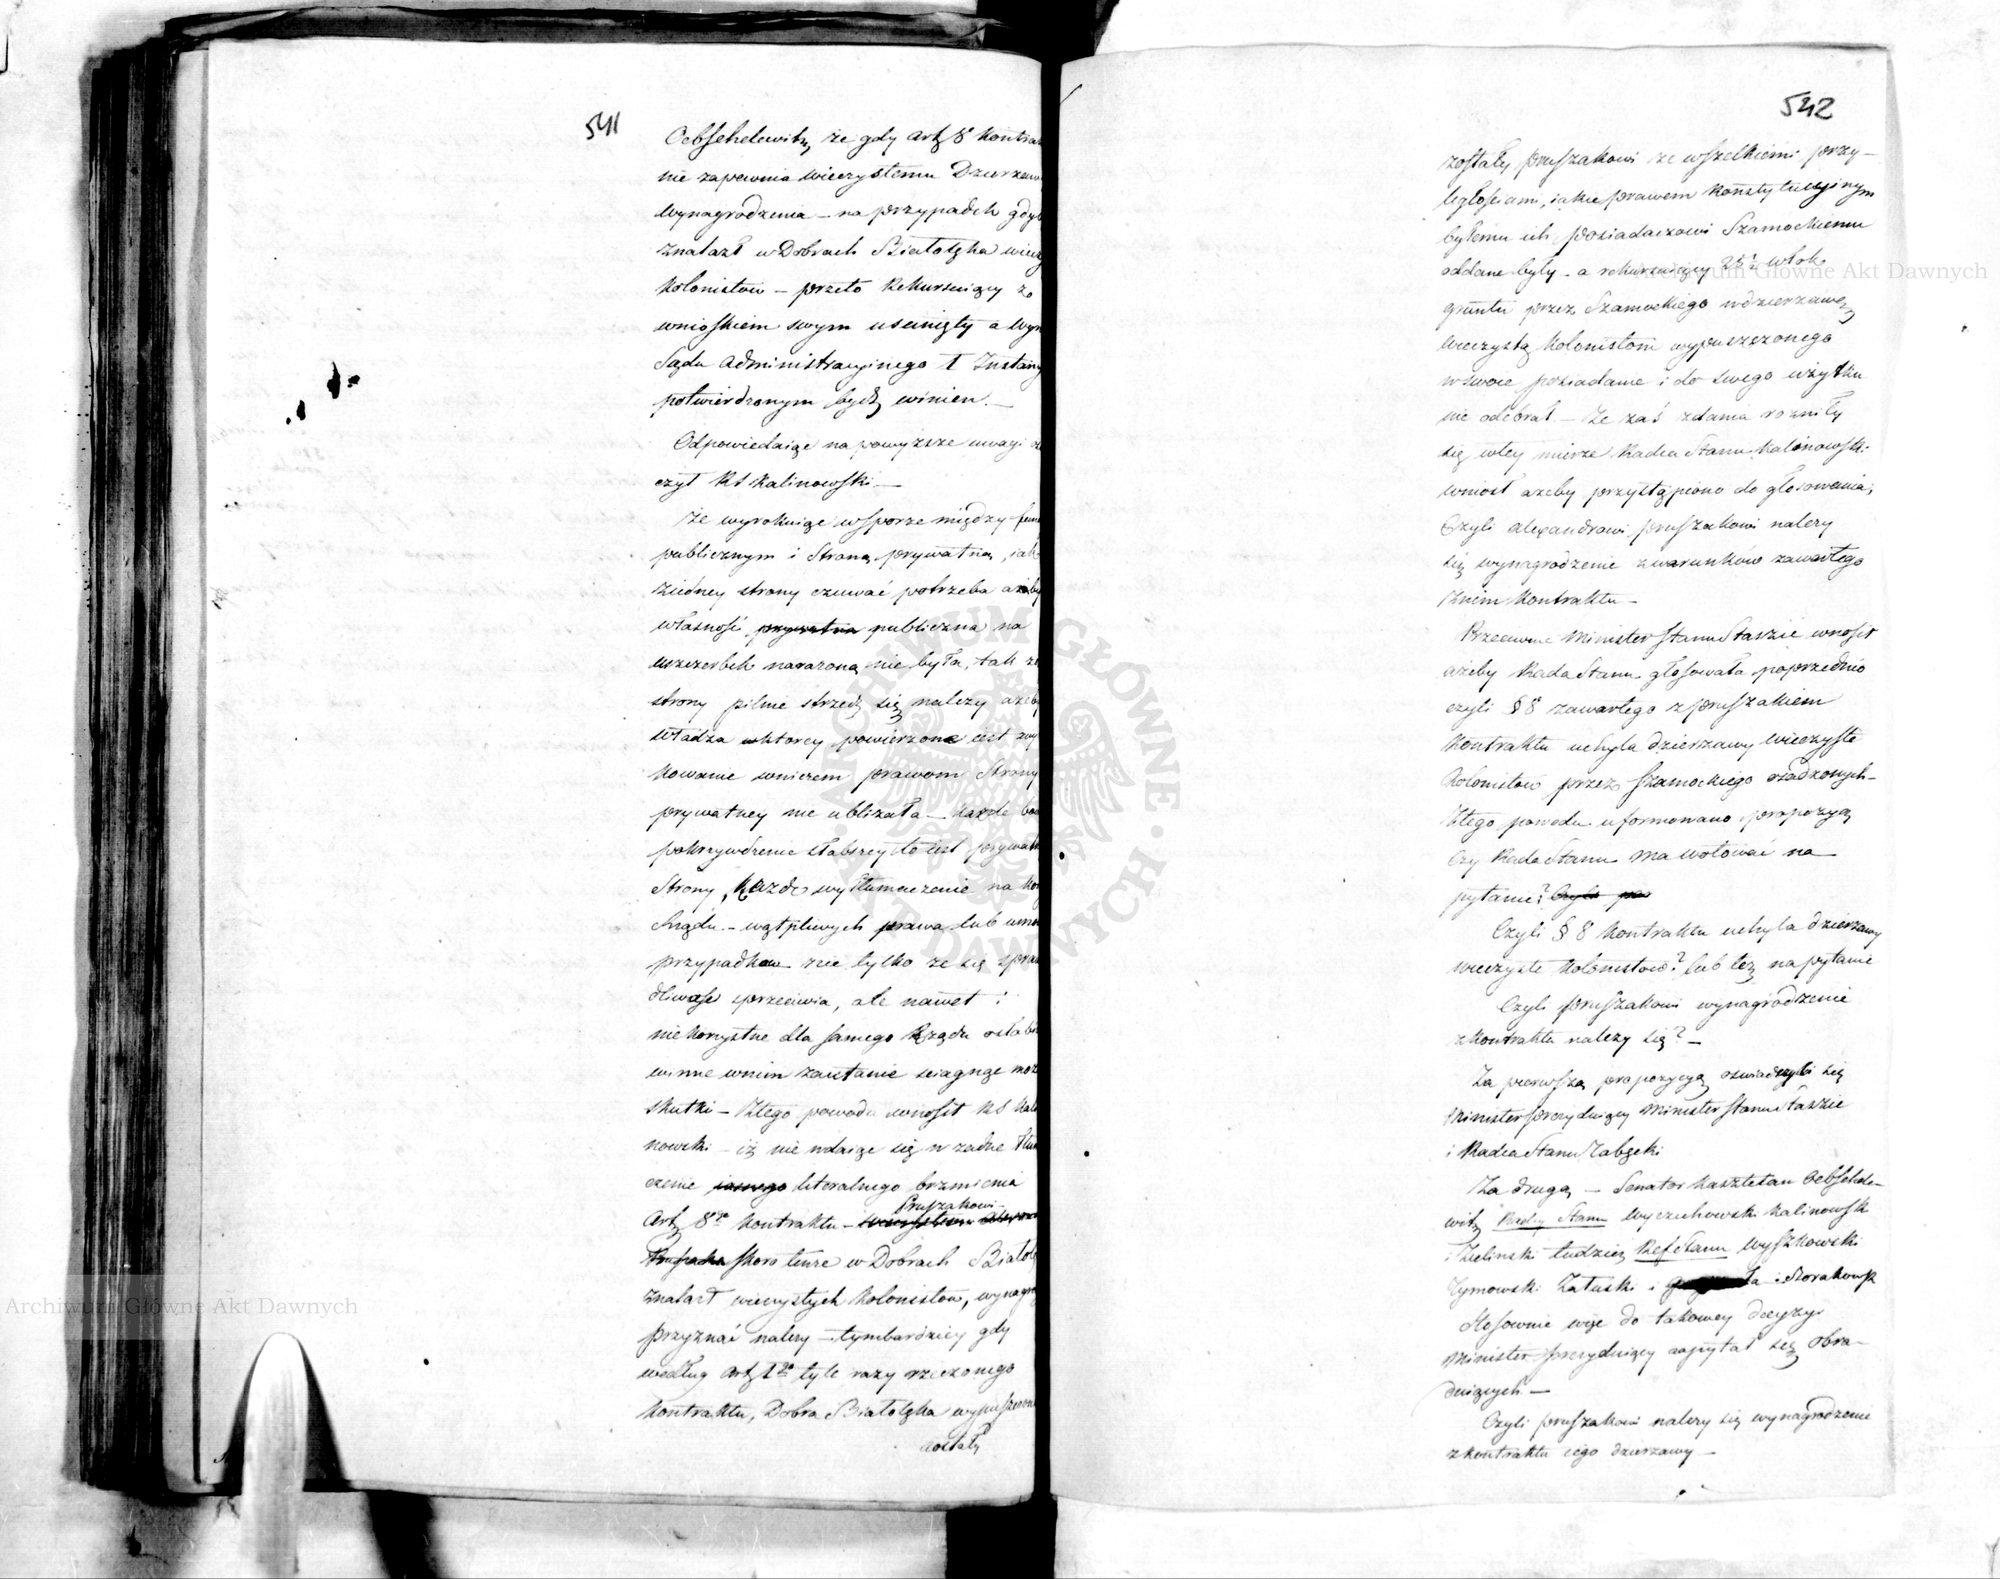 541
Oebschelewitz, że gdy art 8 Kontra
nie zapewnia wieczystemu Dzierzaw
wynagrodzenia – na przypadek gdyb
znalazł w Dobrach Białołęka wiecz
Kolonistow – przeto Rekursuiący ze
wnioskiem swym usunięty a wyr
Sądu administracyinego I Instanc
potwierdzonym bydź winien. –
Odpowiedaiąc na powyższe uwagi
czył RS Kalinowski –
Że wyrokuiąc w sporze między fun
publicznym i Stroną prywatną, iak
ziedney strony czuwać potrzeba ażeby
własność prywatna publiczna na
uszczerbek narażoną nie była, tak ze
strony pilnie strzedz się należy ażeby
władza wktorey powierzone iest wy
kowanie wniczem prawom Strony
prywatney nie ubliżała – każde bo
pokrzywdzenie słabszey to iest prywat
Strony, każde wytłumaczenie na ko
rządu – wątpliwych prawa lub umo
przypadkow nie tylko że się spraw
dliwości sprzeciwia, ale nawet i
niekorzystne dla samego Rządu osłabi
winne wnim zaufanie sciągnąć moż
skutki – Ztego powodu wnosił RS Kali
nowski – iż nie wdaiąc się w żadne tłum
czenie iasnego literalnego brzmienia
Pruszakowi –
Art 8go Kontraktu – wieczystemu
Pruszaka skoro tenże w Dobrach Białoł
znalazł wieczystych Kolonistow, wynagro
przyznać należy – tymbardziey gdy
według art 1go tyle razy rzeczonego
Kontraktu, Dobra Białołęka wypuszczone
zostały
542
zostały Pruszakowi ze wszelkiemi przy–
ległościami, iakie prawem konstytucyinym
byłemu ich posiadaczowi Szamockiemu
oddane były – a rekursuiący 25½ włok
gruntu przez Szamockiego wdzierzawę
wieczystą Kolonistom wypuszczonego
w swoie posiadanie i do swego użytku
nie odebrał – Że zaś zdania rożniły
się wtey mierze Radca Stanu Kalinowski
wniosł ażeby przystąpiono do głosowania,
Czyli alexandrowi Pruszakowi należy
się wynagrodzenie z warunków zawartego
znim Kontraktu –
Przeciwnie Minister Stanu Staszic wnosił
ażeby Rada Stanu głosowała poprzednio
czyli § 8 zawartego z Pruszakiem
Kontraktu uchyla dzierzawy wieczyste
Kolonistow przez Szamockiego osadzonych –
Ztego powodu uformowano propozycyą
Czy Rada Stanu ma wotować na
pytanie? Czyli
Czyli § 8 Kontraktu uchyla dzierzawy
wieczyste Kolonistow? lub też na pytanie
Czyli Pruszakowi wynagrodzenie
z kontraktu należy się? –
Za pierwszą propozycyą oswiadczyli się
Minister Prezyduiący Minister Stanu Staszic
i Radca Stanu Zabęcki
Za drugą – Senator Kasztelan Oebschele–
witz Radcy Stanu Wyczechowski Kalinowski
i Zieliński tudzież Ref Stanu Wyszkowski
Tymowski Załuski i i Morakowski
Stosownie więc do takowey decyzyi
Minister Prezyduiący zapytał się obra–
duiących –
Czyli Pruszakowi należy się wynagrodzenie
z kontraktu iego dzierzawy –
Archiwum Główne Akt Dawnych
Archiwum Główne Akt Dawnych
ARCHIWUM GŁÓWNE AKT DAWNYCH